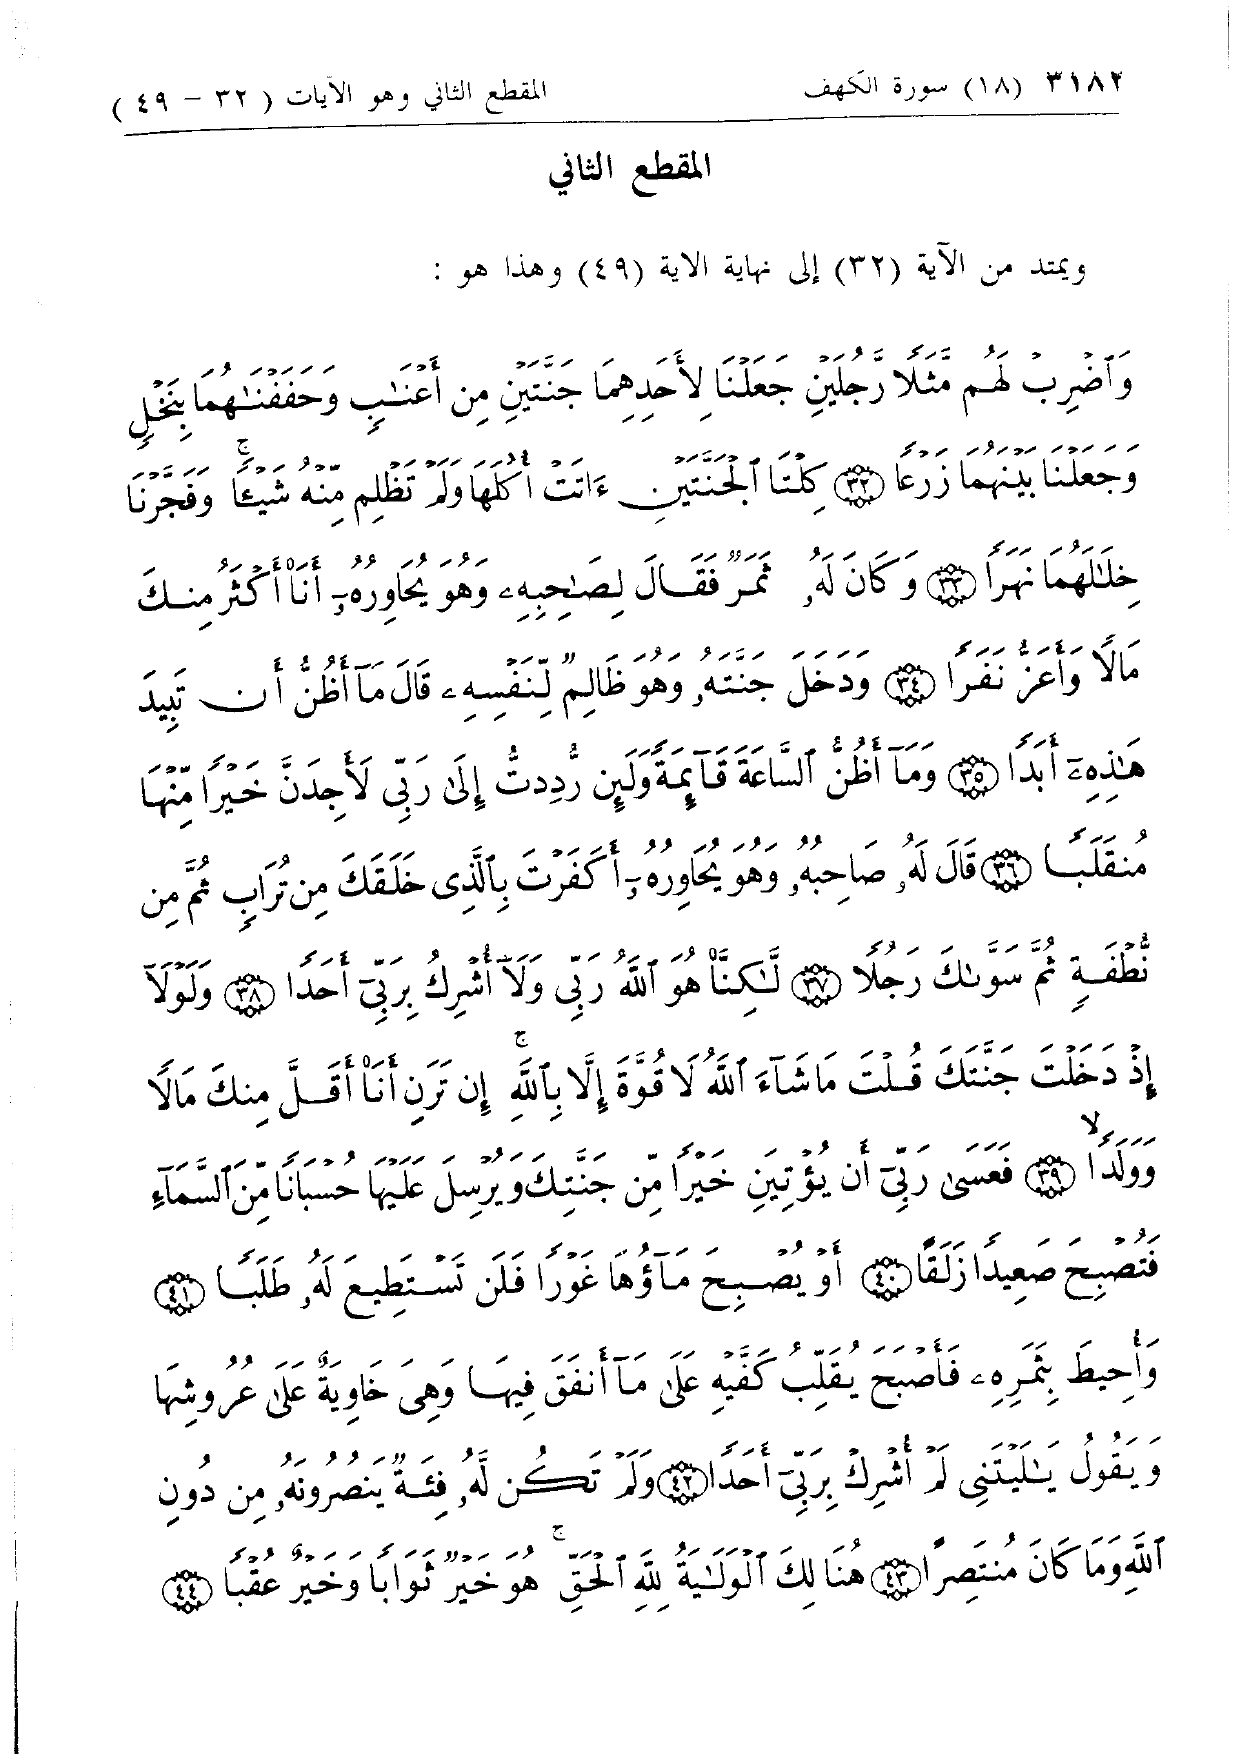 ٣١٨٢ (١٨) سورة الكهف المقطع الثاني وهو الآيات ( ٣٢ - ٤٩ )
المقطع الثاني
ويمتد من الآية (٣٢) إلى نهاية الاية (٤٩) وهذا هو :
وَٱضْرِبْ لَهُم مَّثَلًا رَّجُلَيْنِ جَعَلْنَا لِأَحَدِهِمَا جَنَّتَيْنِ مِنْ أَعْنَٰبٍ وَحَفَفْنَٰهُمَا بِنَخْلٍ
وَجَعَلْنَا بَيْنَهُمَا زَرْعًا ﴿٣٢﴾ كِلْتَا ٱلْجَنَّتَيْنِ ءَاتَتْ أُكُلَهَا وَلَمْ تَظْلِم مِّنْهُ شَيْـًٔا ۚ وَفَجَّرْنَا
خِلَٰلَهُمَا نَهَرًا ﴿٣٣﴾ وَكَانَ لَهُۥ ثَمَرٌ فَقَالَ لِصَٰحِبِهِۦ وَهُوَ يُحَاوِرُهُۥٓ أَنَا۠ أَكْثَرُ مِنكَ
مَالًا وَأَعَزُّ نَفَرًا ﴿٣٤﴾ وَدَخَلَ جَنَّتَهُۥ وَهُوَ ظَالِمٌ لِّنَفْسِهِۦ قَالَ مَآ أَظُنُّ أَن تَبِيدَ
هَٰذِهِۦٓ أَبَدًا ﴿٣٥﴾ وَمَآ أَظُنُّ ٱلسَّاعَةَ قَآئِمَةً وَلَئِن رُّدِدتُّ إِلَىٰ رَبِّى لَأَجِدَنَّ خَيْرًا مِّنْهَا
مُنقَلَبًا ﴿٣٦﴾ قَالَ لَهُۥ صَاحِبُهُۥ وَهُوَ يُحَاوِرُهُۥٓ أَكَفَرْتَ بِٱلَّذِى خَلَقَكَ مِن تُرَابٍ ثُمَّ مِن
نُّطْفَةٍ ثُمَّ سَوَّىٰكَ رَجُلًا ﴿٣٧﴾ لَّٰكِنَّا۠ هُوَ ٱللَّهُ رَبِّى وَلَآ أُشْرِكُ بِرَبِّىٓ أَحَدًا ﴿٣٨﴾ وَلَوْلَآ
إِذْ دَخَلْتَ جَنَّتَكَ قُلْتَ مَا شَآءَ ٱللَّهُ لَا قُوَّةَ إِلَّا بِٱللَّهِ ۚ إِن تَرَنِ أَنَا۠ أَقَلَّ مِنكَ مَالًا
وَوَلَدًا ۙ ﴿٣٩﴾ فَعَسَىٰ رَبِّىٓ أَن يُؤْتِيَنِ خَيْرًا مِّن جَنَّتِكَ وَيُرْسِلَ عَلَيْهَا حُسْبَانًا مِّنَ ٱلسَّمَآءِ
فَتُصْبِحَ صَعِيدًا زَلَقًا ﴿٤٠﴾ أَوْ يُصْبِحَ مَآؤُهَا غَوْرًا فَلَن تَسْتَطِيعَ لَهُۥ طَلَبًا ﴿٤١﴾
وَأُحِيطَ بِثَمَرِهِۦ فَأَصْبَحَ يُقَلِّبُ كَفَّيْهِ عَلَىٰ مَآ أَنفَقَ فِيهَا وَهِىَ خَاوِيَةٌ عَلَىٰ عُرُوشِهَا
وَيَقُولُ يَٰلَيْتَنِى لَمْ أُشْرِكْ بِرَبِّىٓ أَحَدًا ﴿٤٢﴾ وَلَمْ تَكُن لَّهُۥ فِئَةٌ يَنصُرُونَهُۥ مِن دُونِ
ٱللَّهِ وَمَا كَانَ مُنتَصِرًا ﴿٤٣﴾ هُنَالِكَ ٱلْوَلَٰيَةُ لِلَّهِ ٱلْحَقِّ ۚ هُوَ خَيْرٌ ثَوَابًا وَخَيْرٌ عُقْبًا ﴿٤٤﴾